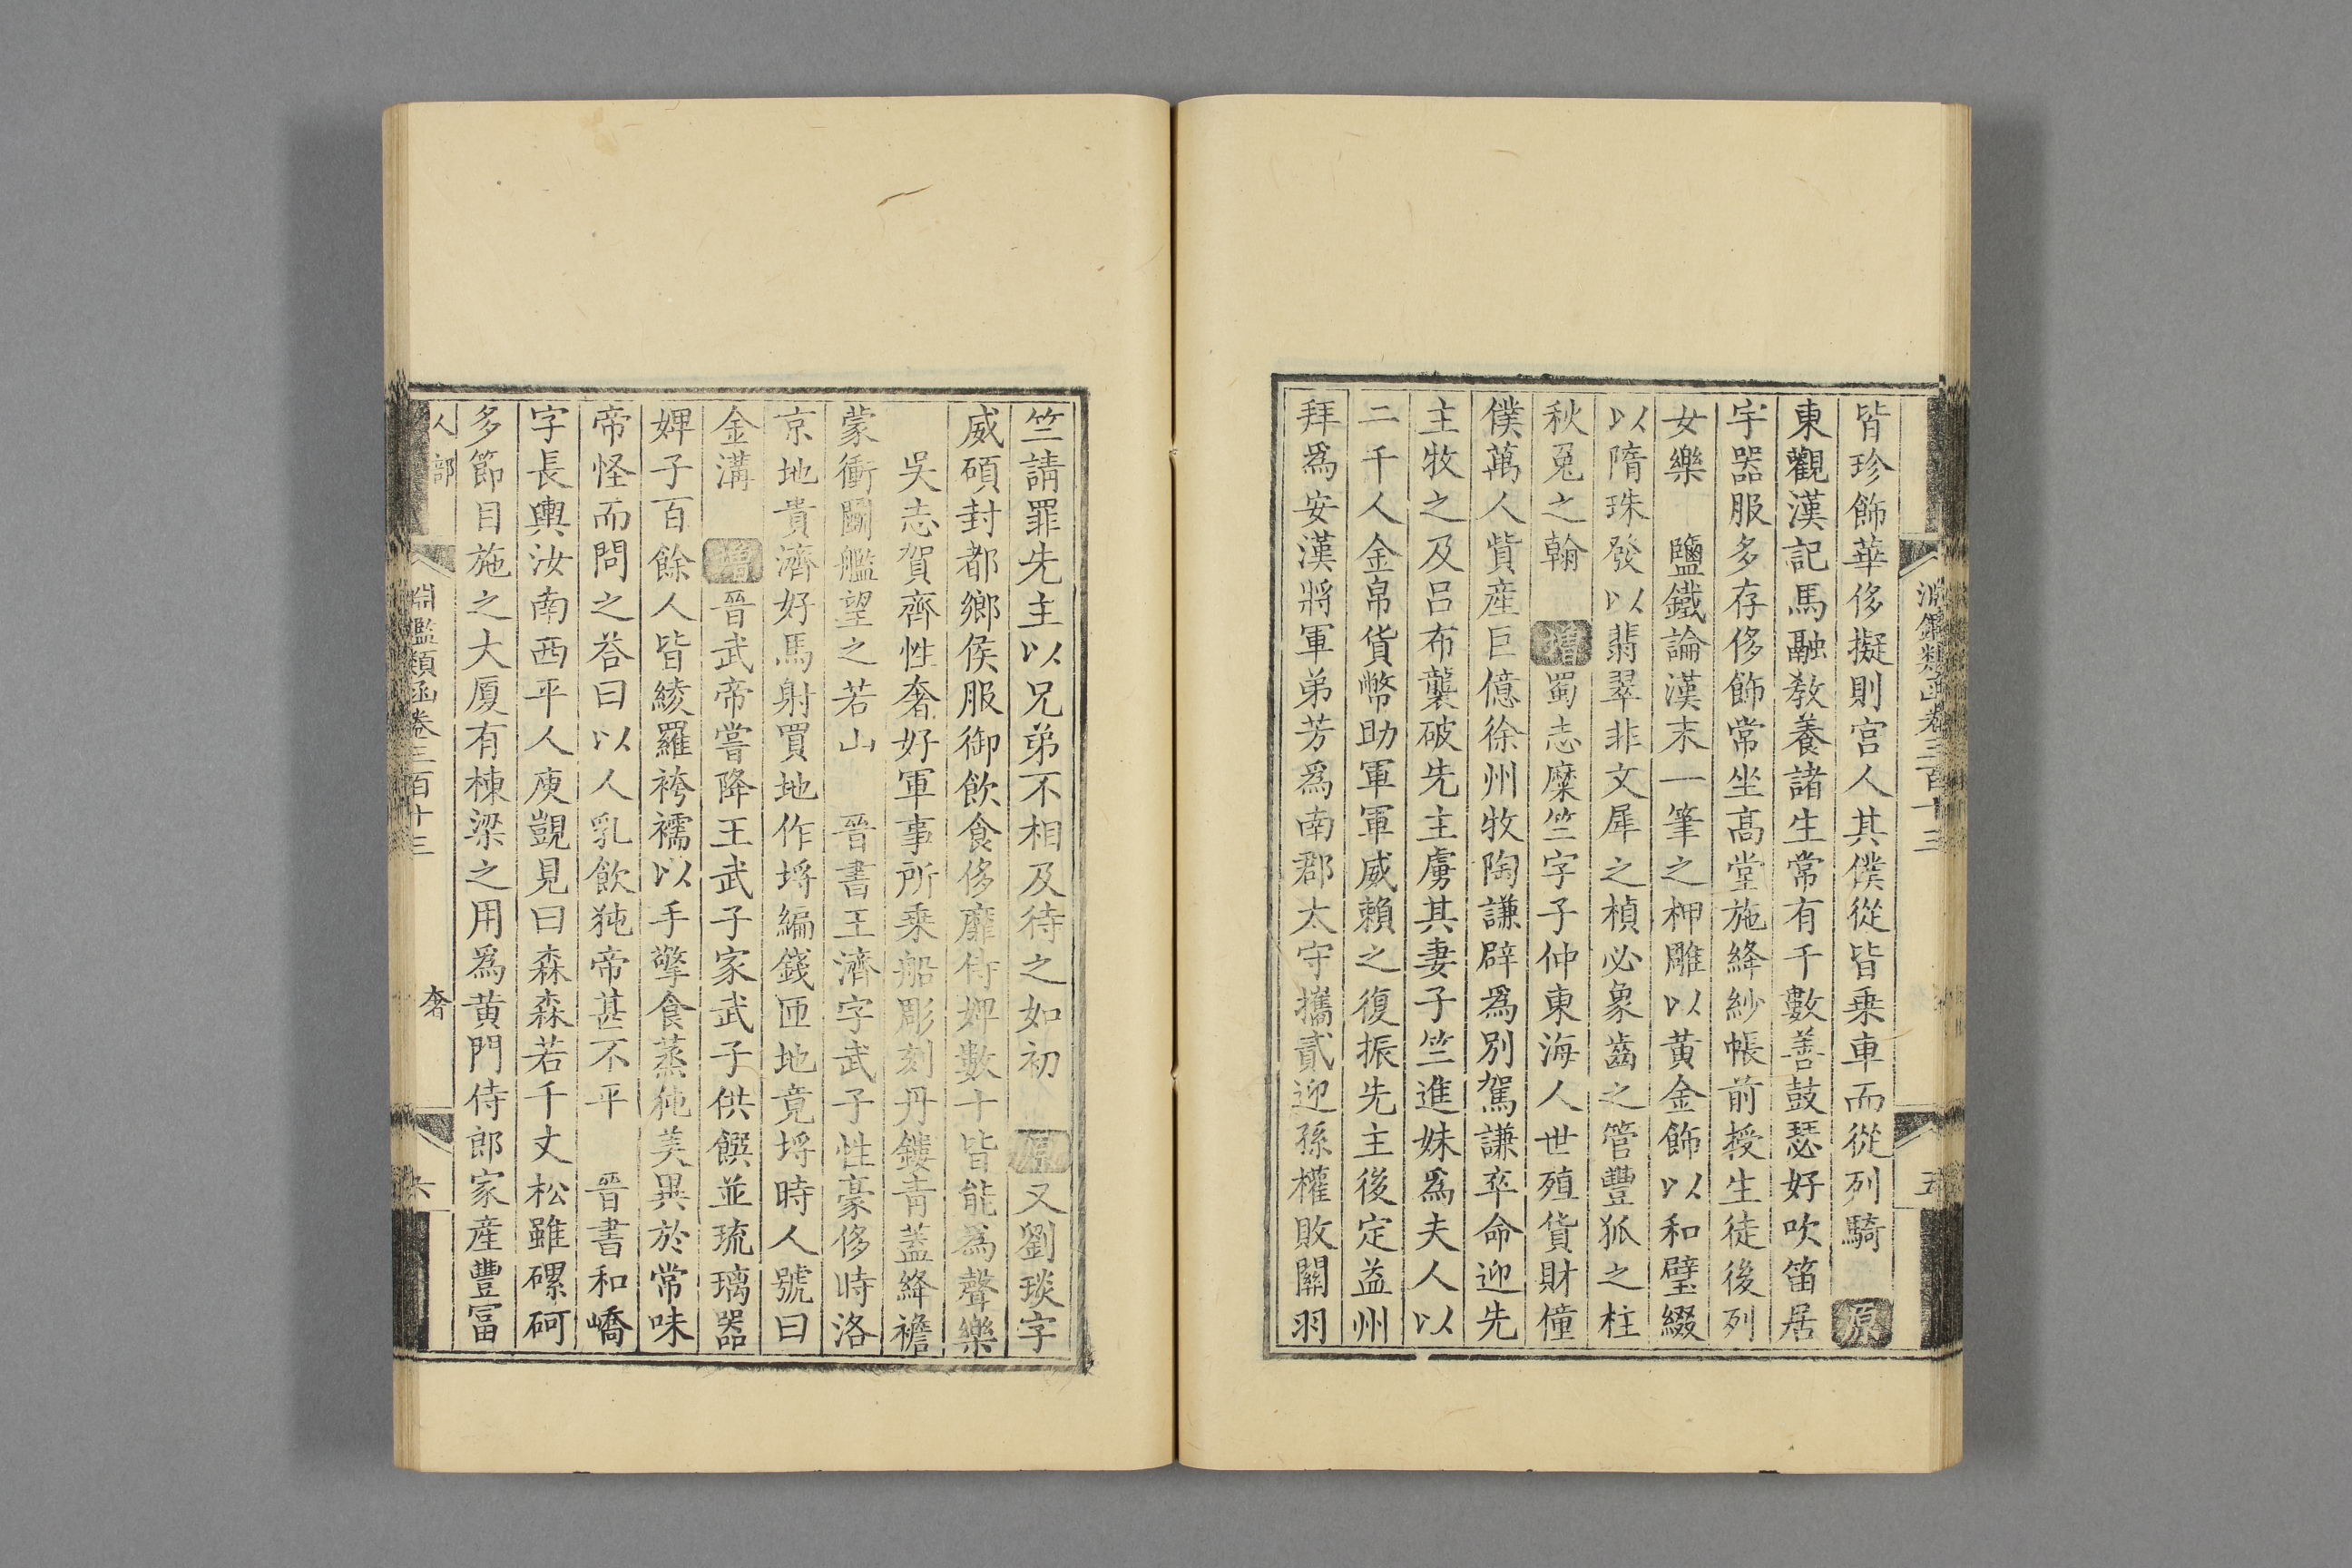 淵鑑類函卷三百十三
五
皆珍飾華侈擬則宫人其僕從皆乗車而從列騎 原
東觀漢記馬融敎養諸生常有千數善鼓瑟好吹笛居
宇器服多存侈飾常坐髙堂施絳紗帳前授生徒後列
女樂 鹽鐵論漢末一筆之柙雕以黃金飾以和璧綴
以隋珠發以翡翠非文犀之楨必象齒之管豐狐之柱
秋兎之翰 增 蜀志糜竺字子仲東海人世殖貨財僮
僕萬人貲産巨億徐州牧陶謙辟爲別駕謙卒命迎先
主牧之及呂布襲破先主虜其妻子竺進妹爲夫人以
二千人金帛貨幣助軍軍威賴之復振先主後定益州
拜爲安漢將軍弟芳爲南郡太守攜貳迎孫權敗關羽
竺請罪先主以兄弟不相及待之如初 原 又劉琰字
威碩封都鄉侯服御飲食侈靡侍婢數十皆能爲聲樂
吳志賀齊性奢好軍事所乗船彫刻丹鏤靑蓋絳襜
蒙衝鬭艦望之若山 晉書王濟字武子性豪侈時洛
京地貴濟好馬射買地作埒編錢匝地竟埒時人號曰
金溝 增 晉武帝嘗降王武子家武子供饌並琉璃器
婢子百餘人皆綾羅袴襦以手擎食蒸㹠美異於常味
帝怪而問之荅曰以人乳飲㹠帝甚不平 晉書和嶠
字長輿汝南西平人庾顗見曰森森若千丈松雖磥砢
多節目施之大厦有棟梁之用爲黃門侍郎家産豐富
人部
淵鑑類函卷三百十三
奢
六